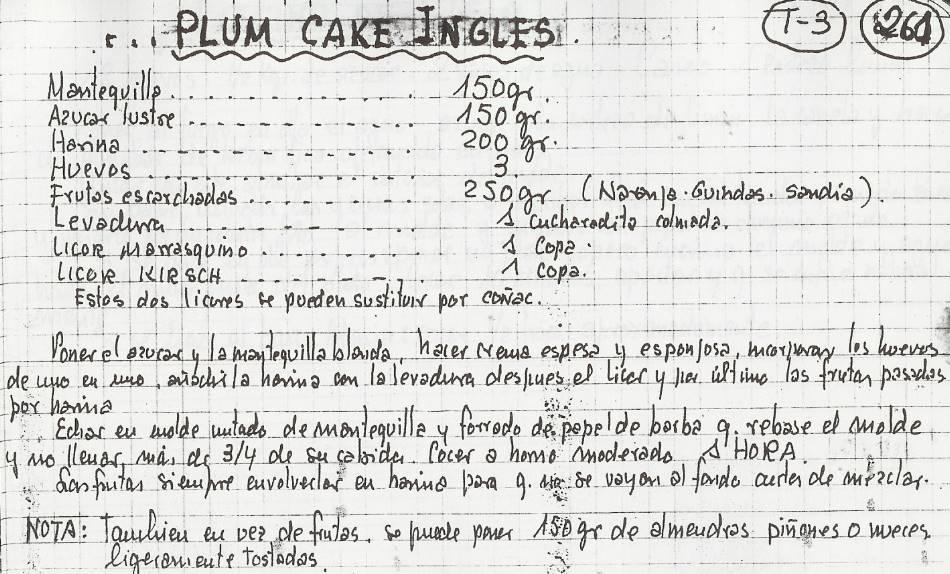 ... PLUM CAKE INGLES. T-3 264
Mantequilla.............. 150gr.
Azucar lustre.............. 150 gr.
Harina.............. 200 gr.
Huevos.............. 3.
Frutas escarchadas.............. 250gr (Naranja. Guindas. Sandia).
Levadura.............. 1 Cucharadita colmada.
LICOR Marrasquino.............. 1 Copa.
LICOR KIRSCH.............. 1 Copa.
Estos dos licores se pueden sustituir por coñac.
Poner el azucar y la mantequilla blanda, hacer crema espesa y esponjosa, incorporar los huevos
de uno en uno, añadir la harina con la levadura despues el licor y por último las frutas pasadas
por harina
Echar en molde untado de mantequilla y forrado de papel de barba q. rebase el molde
y no llenar, más de 3/4 de su cabida. Cocer a horno moderado 1 HORA.
Las frutas siempre envolverlas en harina para q. no se vayan al fondo antes de mezclar.
NOTA: Tambien en vez de frutas, se puede poner 150 gr de almendras piñones o nueces.
ligeramente tostadas.